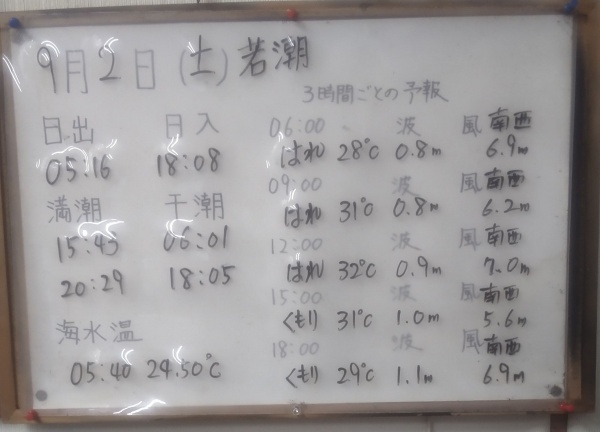 9月2日(土)若潮
3時間ごとの予報
日出 日入
05:16 18:08
満潮 干潮
15:45 06:01
20:29 18:05
海水温
05:40 24.50℃
06:00 波 風 南西
はれ 28℃ 0.8m 6.9m
09:00 波 風 南西
はれ 31℃ 0.8m 6.2m
12:00 波 風 南西
はれ 32℃ 0.9m 7.0m
15:00 波 風 南西
くもり 31℃ 1.0m 5.6m
18:00 波 風 南西
くもり 29℃ 1.1m 6.9m